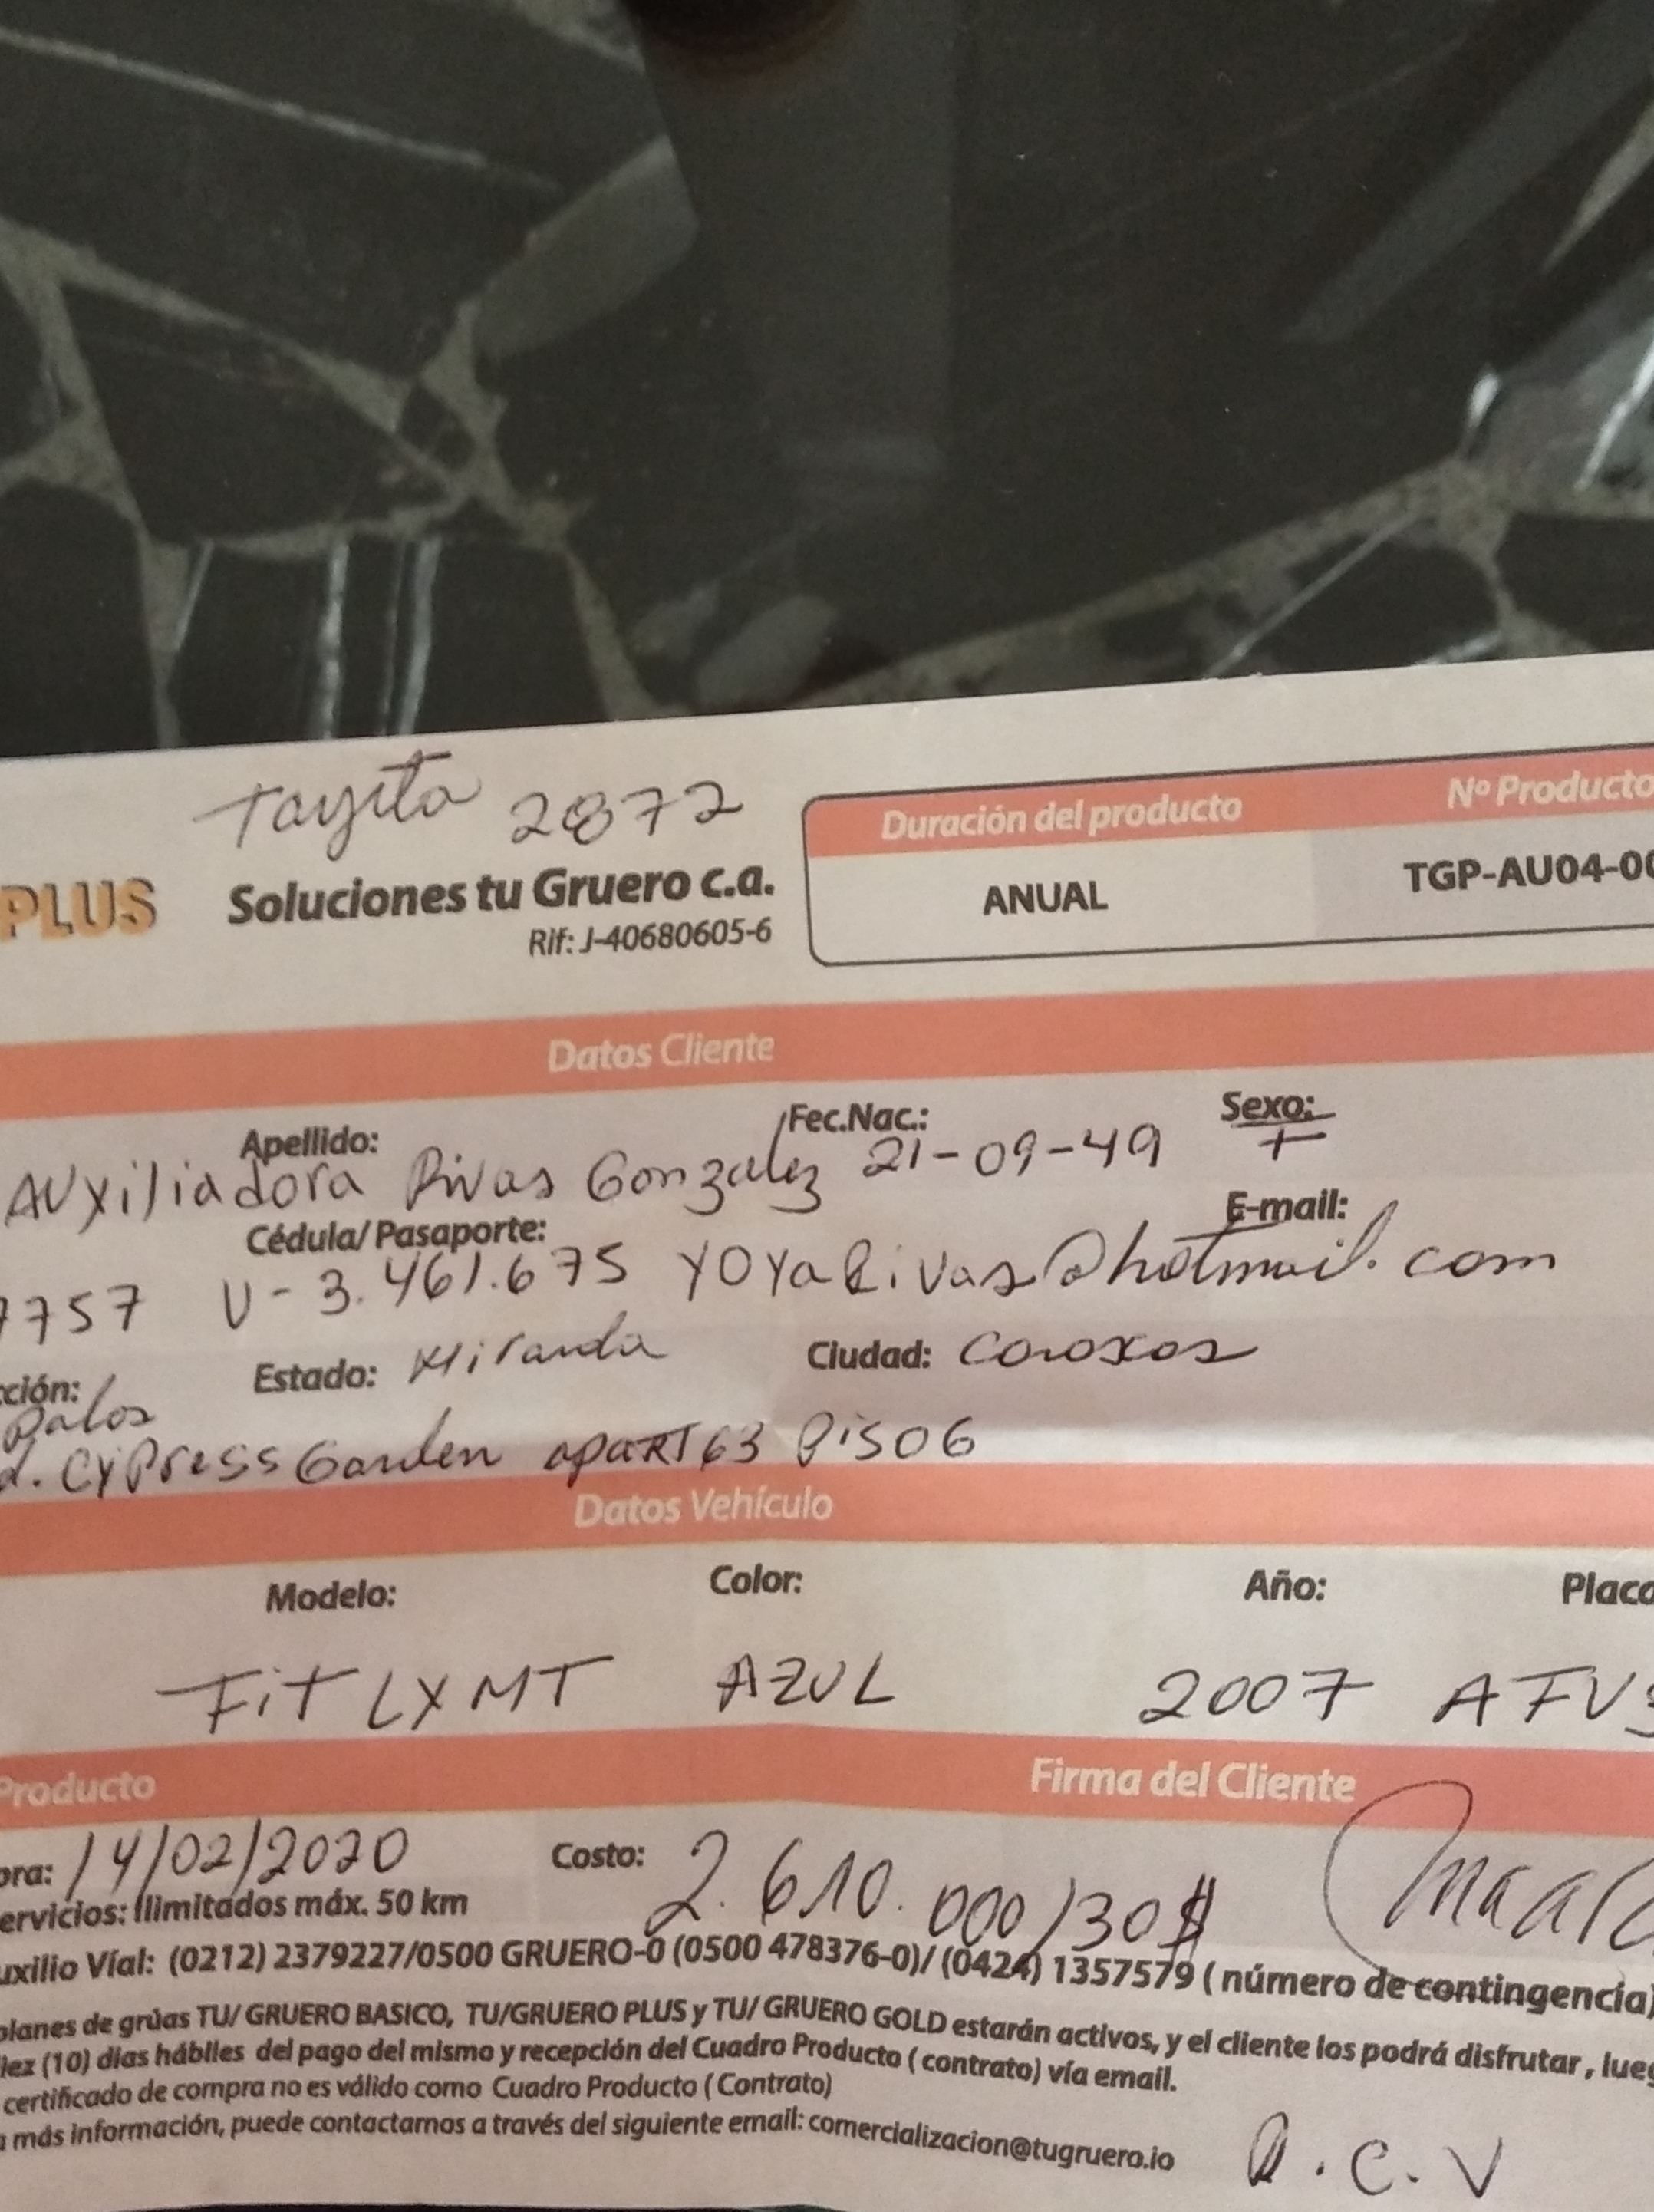 Tayita 2872
Duración del producto Nº Producto
PLUS Soluciones tu Gruero c.a. ANUAL TGP-AU04-00
Rif: J-40680605-6
Datos Cliente
Apellido: Fec.Nac.: Sexo:
Auxiliadora Rivas Gonzalez 21-09-49 F
Cédula/Pasaporte: E-mail:
7757 V-3.461.675 YOYaRivas@hotmail.com
cción: Estado: Miranda Ciudad: Caracas
Palos
d. CYPress Garden apaRT 63 PiSO6
Datos Vehículo
Modelo: Color: Año: Placa
FiT LX MT AZUL 2007 AFV
Producto Firma del Cliente
ora: 14/02/2020 Costo: 2.610.000/30$
ervicios: Ilimitados máx. 50 km
uxilio Víal: (0212) 2379227/0500 GRUERO-0 (0500 478376-0)/ (0424) 1357579 ( número de contingencia)
planes de grúas TU/ GRUERO BASICO, TU/GRUERO PLUS y TU/ GRUERO GOLD estarán activos, y el cliente los podrá disfrutar , lueg
iez (10) días hábiles del pago del mismo y recepción del Cuadro Producto ( contrato) vía email.
certificado de compra no es válido como Cuadro Producto ( Contrato)
a más información, puede contactarnos a través del siguiente email: comercializacion@tugruero.io
R.C.V